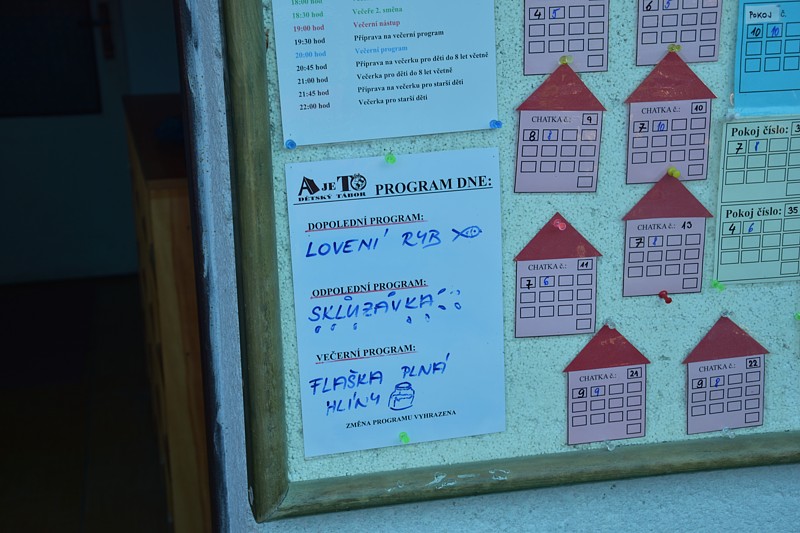 18:00 hod
Večeře 2. směna
18:30 hod
Večerní nástup
19:00 hod
Příprava na večerní program
19:30 hod
Večerní program
20:00 hod
Příprava na večerku pro děti do 8 let včetně
20:45 hod
Večerka pro děti do 8 let včetně
21:00 hod
Příprava na večerku pro starší děti
21:45 hod
Večerka pro starší děti
22:00 hod
A JE TO
DĚTSKÝ TÁBOR
PROGRAM DNE:
DOPOLEDNÍ PROGRAM:
LOVENÍ RYB
ODPOLEDNÍ PROGRAM:
SKLŮZAVKA
VEČERNÍ PROGRAM:
FLAŠKA PLNÁ
HLÍNY
ZMĚNA PROGRAMU VYHRAZENA
4 5
6 5
CHATKA č.: 9
8 8
CHATKA č.: 10
7 10
CHATKA č.: 11
7 6
CHATKA č.: 13
7 8
CHATKA č.: 21
9 9
CHATKA č.: 22
9 8
POKOJ č.
10 10
Pokoj číslo:
7 8
Pokoj číslo: 35
4 6